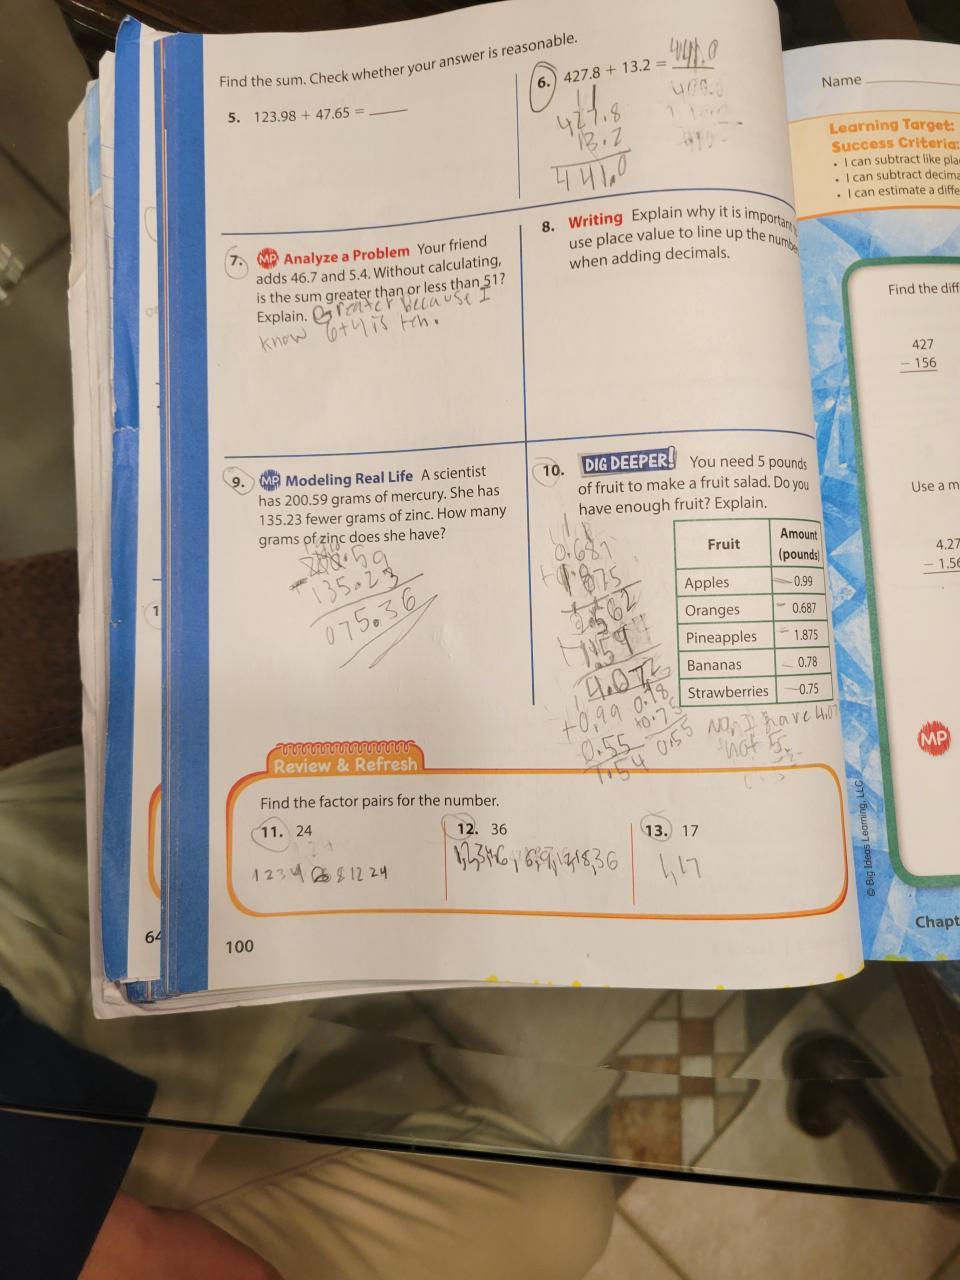 Find the sum. Check whether your answer is reasonable.
5. 123.98 + 47.65 =
6. 427.8 + 13.2 = 441.0
11
427.8
13.2
441.0
7. MP Analyze a Problem Your friend
adds 46.7 and 5.4. Without calculating,
is the sum greater than or less than 51?
Explain. Greater because I
know 6+4 is ten.
8. Writing Explain why it is important
use place value to line up the
when adding decimals.
9. MP Modeling Real Life A scientist
has 200.59 grams of mercury. She has
135.23 fewer grams of zinc. How many
grams of zinc does she have?
135.23
075.36
10. DIG DEEPER! You need 5 pounds
of fruit to make a fruit salad. Do you
have enough fruit? Explain.
Fruit Amount
(pounds)
Apples 0.99
Oranges 0.687
Pineapples 1.875
Bananas 0.78
Strawberries 0.75
0.687
+ 1.875
2.562
4.07
+0.99 0.78
+0.75
0.55 0.55
1.54
No, I have 4.07
not 5.
Review & Refresh
Find the factor pairs for the number.
11. 24
12. 36
13. 17
1 2 3 4 6 8 12 24
1,17
64
100
Name
Learning Target:
Success Criteria:
• I can subtract like
• I can subtract
• I can estimate a
Find the
427
− 156
Use a
4.27
MP
© Big Ideas Learning, LLC